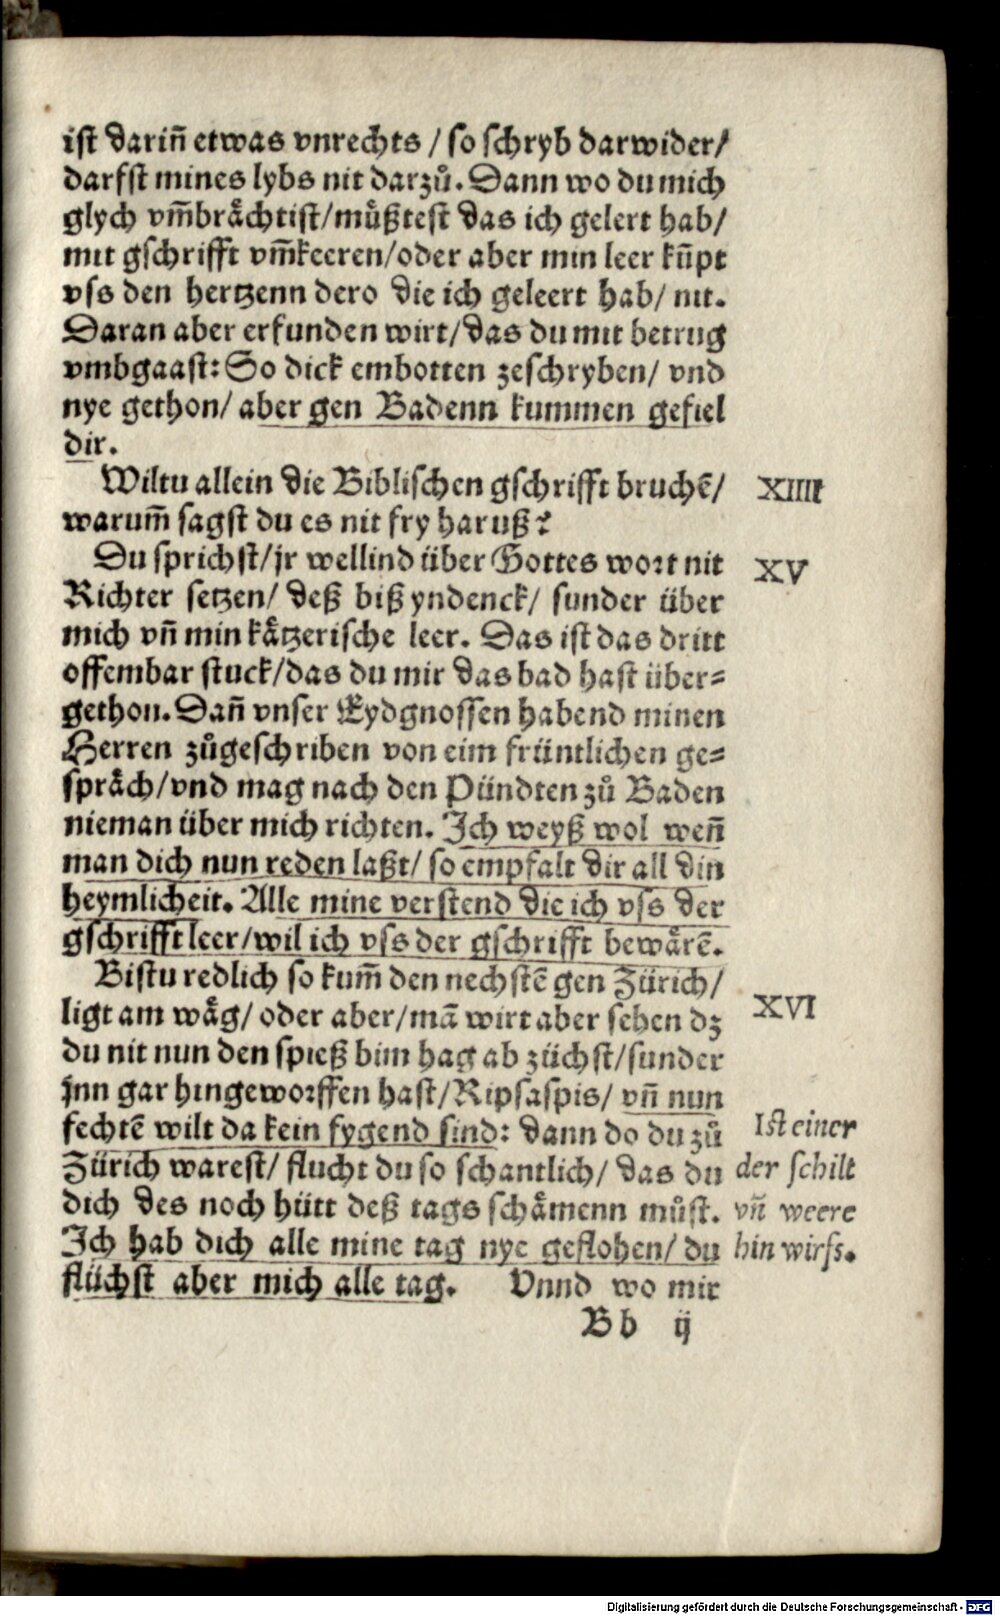 ist dariñ etwas vnrechts / so schryb darwider/
darfst mines lybs nit darzuͦ. Dann wo du mich
glych vm̃braͤchtist/muͤßtest das ich gelert hab/
mit gschrifft vm̃keeren/oder aber min leer kum̃pt
vss den hertzenn dero die ich geleert hab/ nit.
Daran aber erfunden wirt/das du mit betrug
vmbgaast: So dick embotten zeschryben/ vnd
nye gethon/ aber gen Badenn kummen gefiel
dir.
Wiltu allein die Biblischen gschrifft bruchẽ/ XIIII
warum̃ sagst du es nit fry haruß?
Du sprichst/jr wellind über Gottes wort nit XV
Richter setzen/ deß biß yndenck/ sunder über
mich vñ min kaͤtzerische leer. Das ist das dritt
offembar stuck/das du mir das bad hast über=
gethon. Dañ vnser Eydgnossen habend minen
Herren zuͦgeschriben von eim früntlichen ge=
spraͤch/vnd mag nach den Pündten zuͦ Baden
nieman über mich richten. Ich weyß wol weñ
man dich nun reden laßt/ so empfalt dir all din
heymlicheit. Alle mine verstend die ich vss der
gschrifft leer/wil ich vss der gschrifft bewaͤrẽ.
Bistu redlich so kum̃ den nechstẽ gen Zürich/
ligt am waͤg/ oder aber/mã wirt aber sehen dz XVI
du nit nun den spieß bim hag ab züchst/sunder
jnn gar hingeworffen hast/Ripsaspis/ vñ nun
fechtẽ wilt da kein fygend sind: dann do du zuͦ
Zürich warest/ flucht du so schantlich/ das du
dich des noch hütt deß tags schaͤmenn muͦst.
Ich hab dich alle mine tag nye geflohen/ du
flüchst aber mich alle tag. Vnnd wo mir
Ist einer
der schilt
vñ weere
hin wirfs.
Bb ij
Digitalisierung gefördert durch die Deutsche Forschungsgemeinschaft - DFG